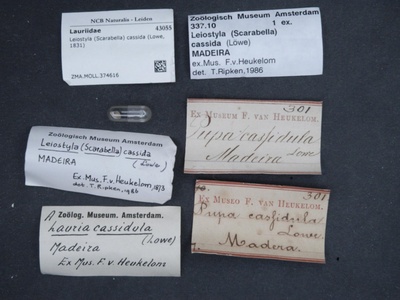 NCB Naturalis - Leiden
Lauriidae 43055
Leiostyla (Scarabella) cassida (Lowe,
1831)
ZMA.MOLL.374616
Zoölogisch Museum Amsterdam
337.10 1 ex.
Leiostyla (Scarabella)
cassida (Lowe)
MADEIRA
ex.Mus. F.v.Heukelom
det. T.Ripken,1986
Zoölogisch Museum Amsterdam
Leiostyla (Scarabella) cassida
(Lowe)
MADEIRA
Ex. Mus. F.v. Heukelom, 1873
det. T. Ripken, 1986
301
EX MUSEUM F. VAN HEUKELOM.
Pupa cassidula
Lowe
Madeira
Zoölog. Museum. Amsterdam.
Lauria cassidula
(Lowe)
Madeira
Ex Mus. F. v. Heukelom
301
EX MUSEO F. VAN HEUKELOM.
Pupa cassidula
Lowe.
Madera.